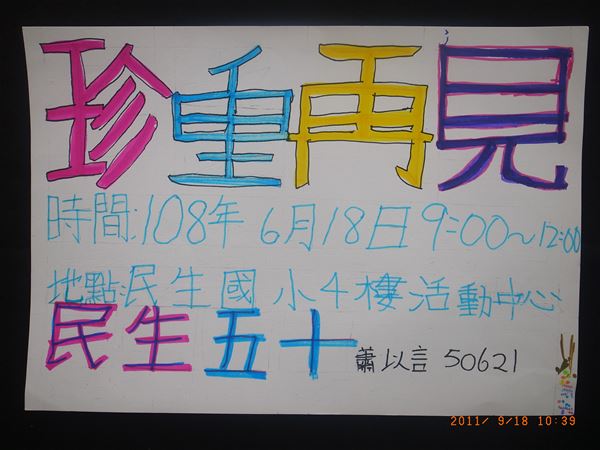 珍重再見
時間:108年 6月18日 9:00~12:00
地點:民生國小4樓活動中心
民生五十 蕭以言 50621
2011/ 9/18 10:39